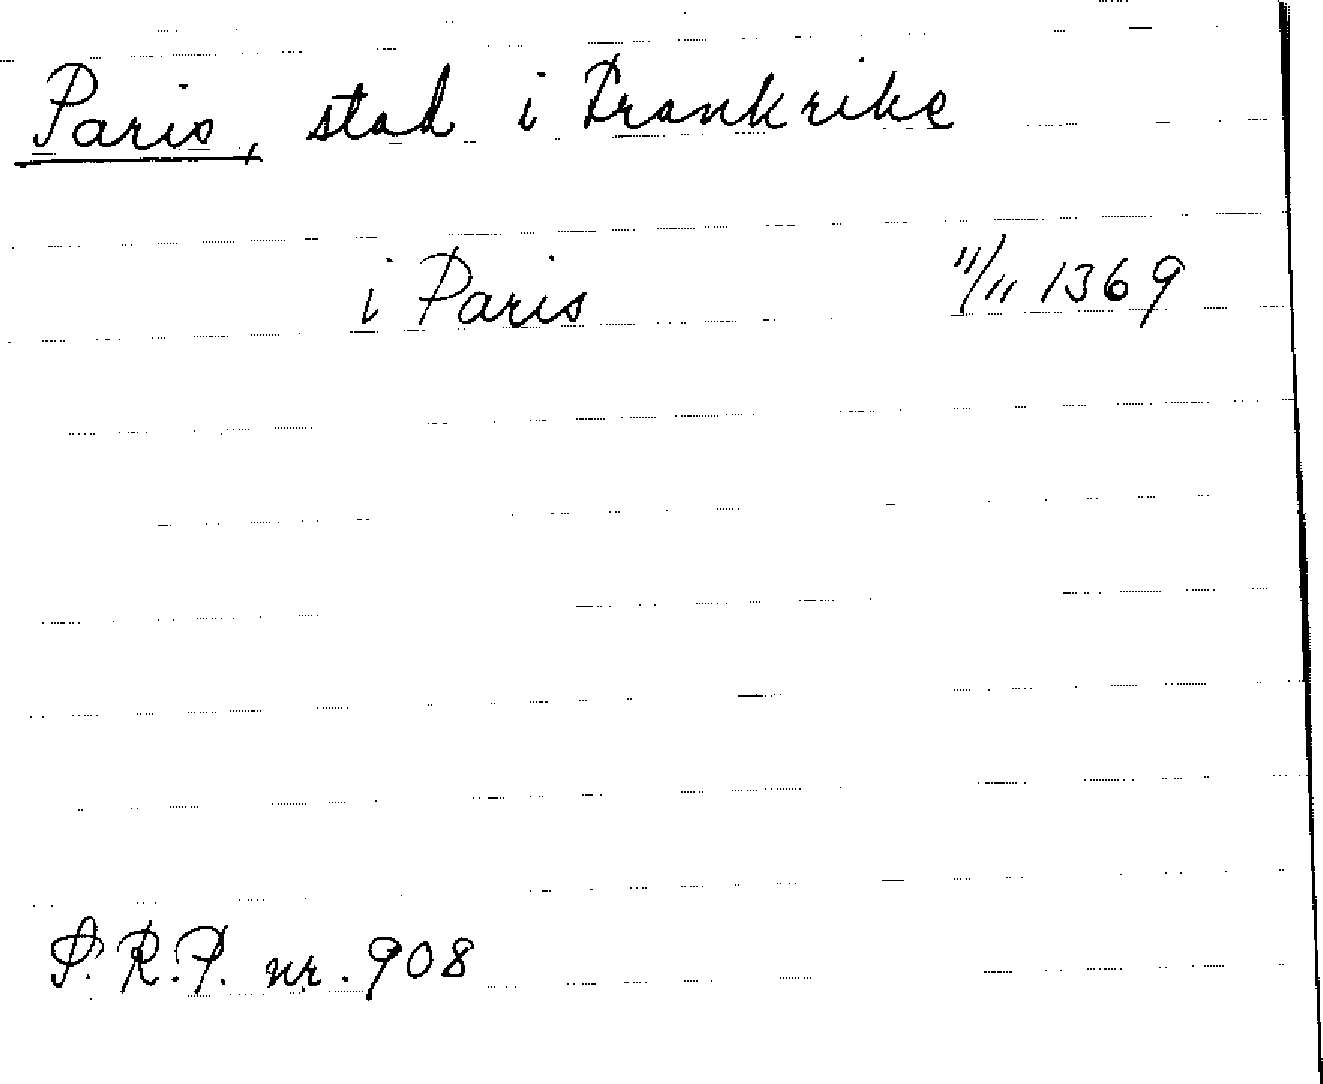 Paris, stad i Frankrike
i Paris 11/11 1369
S.R.P. nr. 908